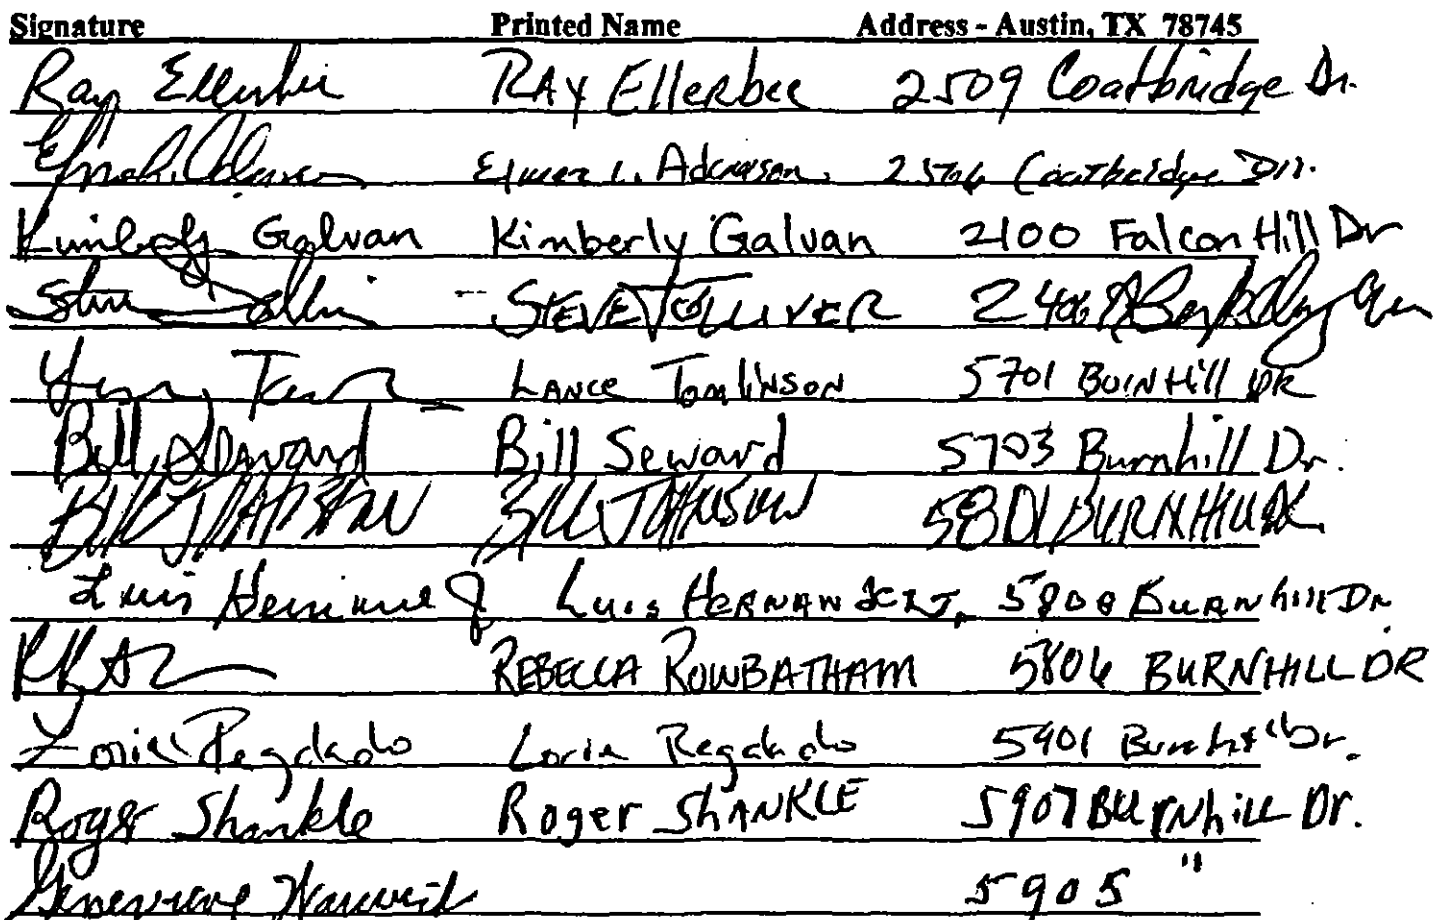 Signature Printed Name Address - Austin, TX 78745
Ray Ellerbee RAY Ellerbee 2509 Coatbridge Dr.
Elmer L. Adamson 2506 Coatbridge Dr.
Kimberly Galvan Kimberly Galvan 2100 Falcon Hill Dr
Steve Tolliver STEVE TOLLIVER 2406
Lance Tomlinson 5701 BurnHill DR
Bill Seward Bill Seward 5703 Burnhill Dr.
Bill Johnson BILL JOHNSON 5801 BURNHILL DR
Luis Hernandez Jr Luis HERNANDEZ JR, 5808 BURNhill Dr
REBECCA ROWBATHAM 5806 BURNHILL DR
Lorie Regalado Lorie Regalado 5901 Burnhill Dr.
Roger Shankle Roger ShANKLE 5907 BURNhill Dr.
Genevieve 5905 "